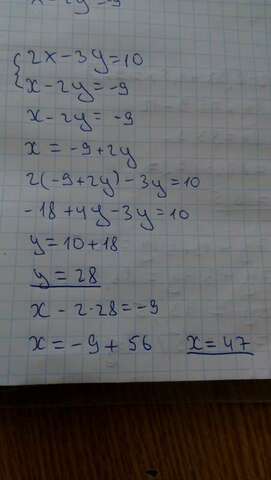 x-2y=-9
2x-3y=10
x-2y=-9
x-2y=-9
x=-9+2y
2(-9+2y)-3y=10
-18+4y-3y=10
y=10+18
y=28
x-2·28=-9
x=-9+56 x=47